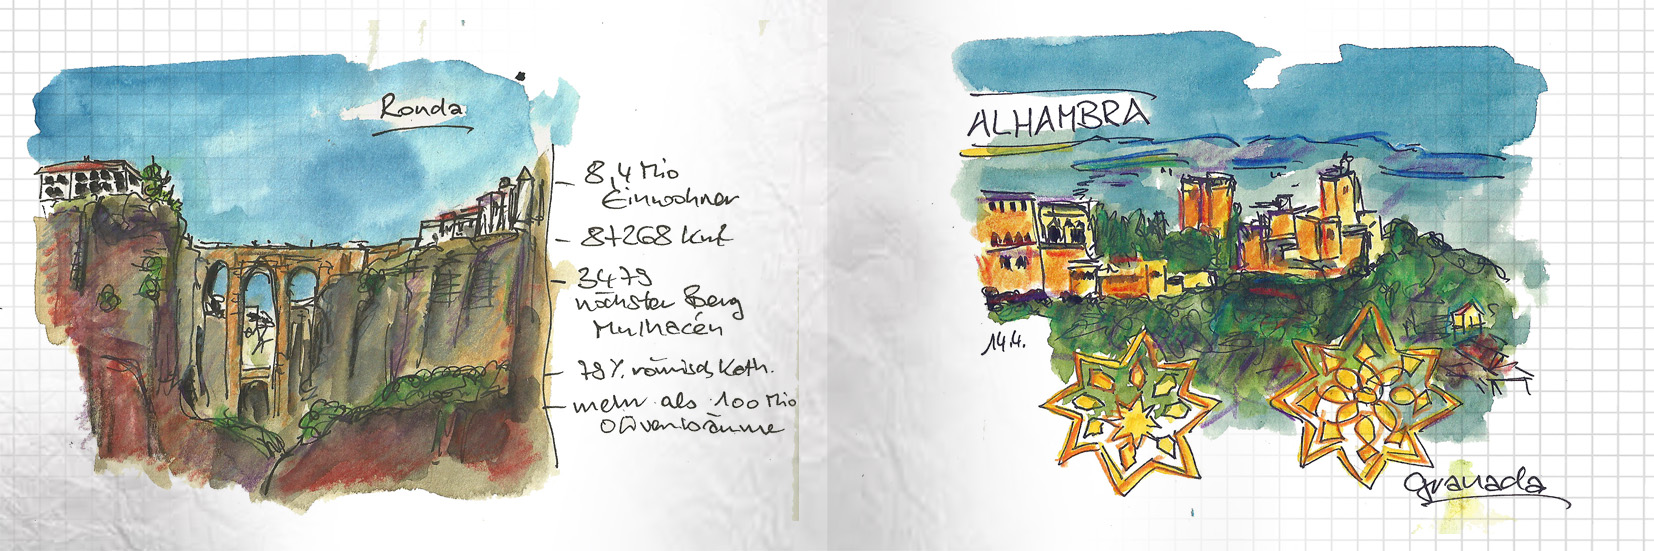 Ronda
– 8,4 Mio
Einwohner
– 87268 km²
– 3479
höchster Berg
Mulhacén
– 78% römisch Kath.
– mehr als 100 Mio
Olivenbäume
ALHAMBRA
14.4.
granada